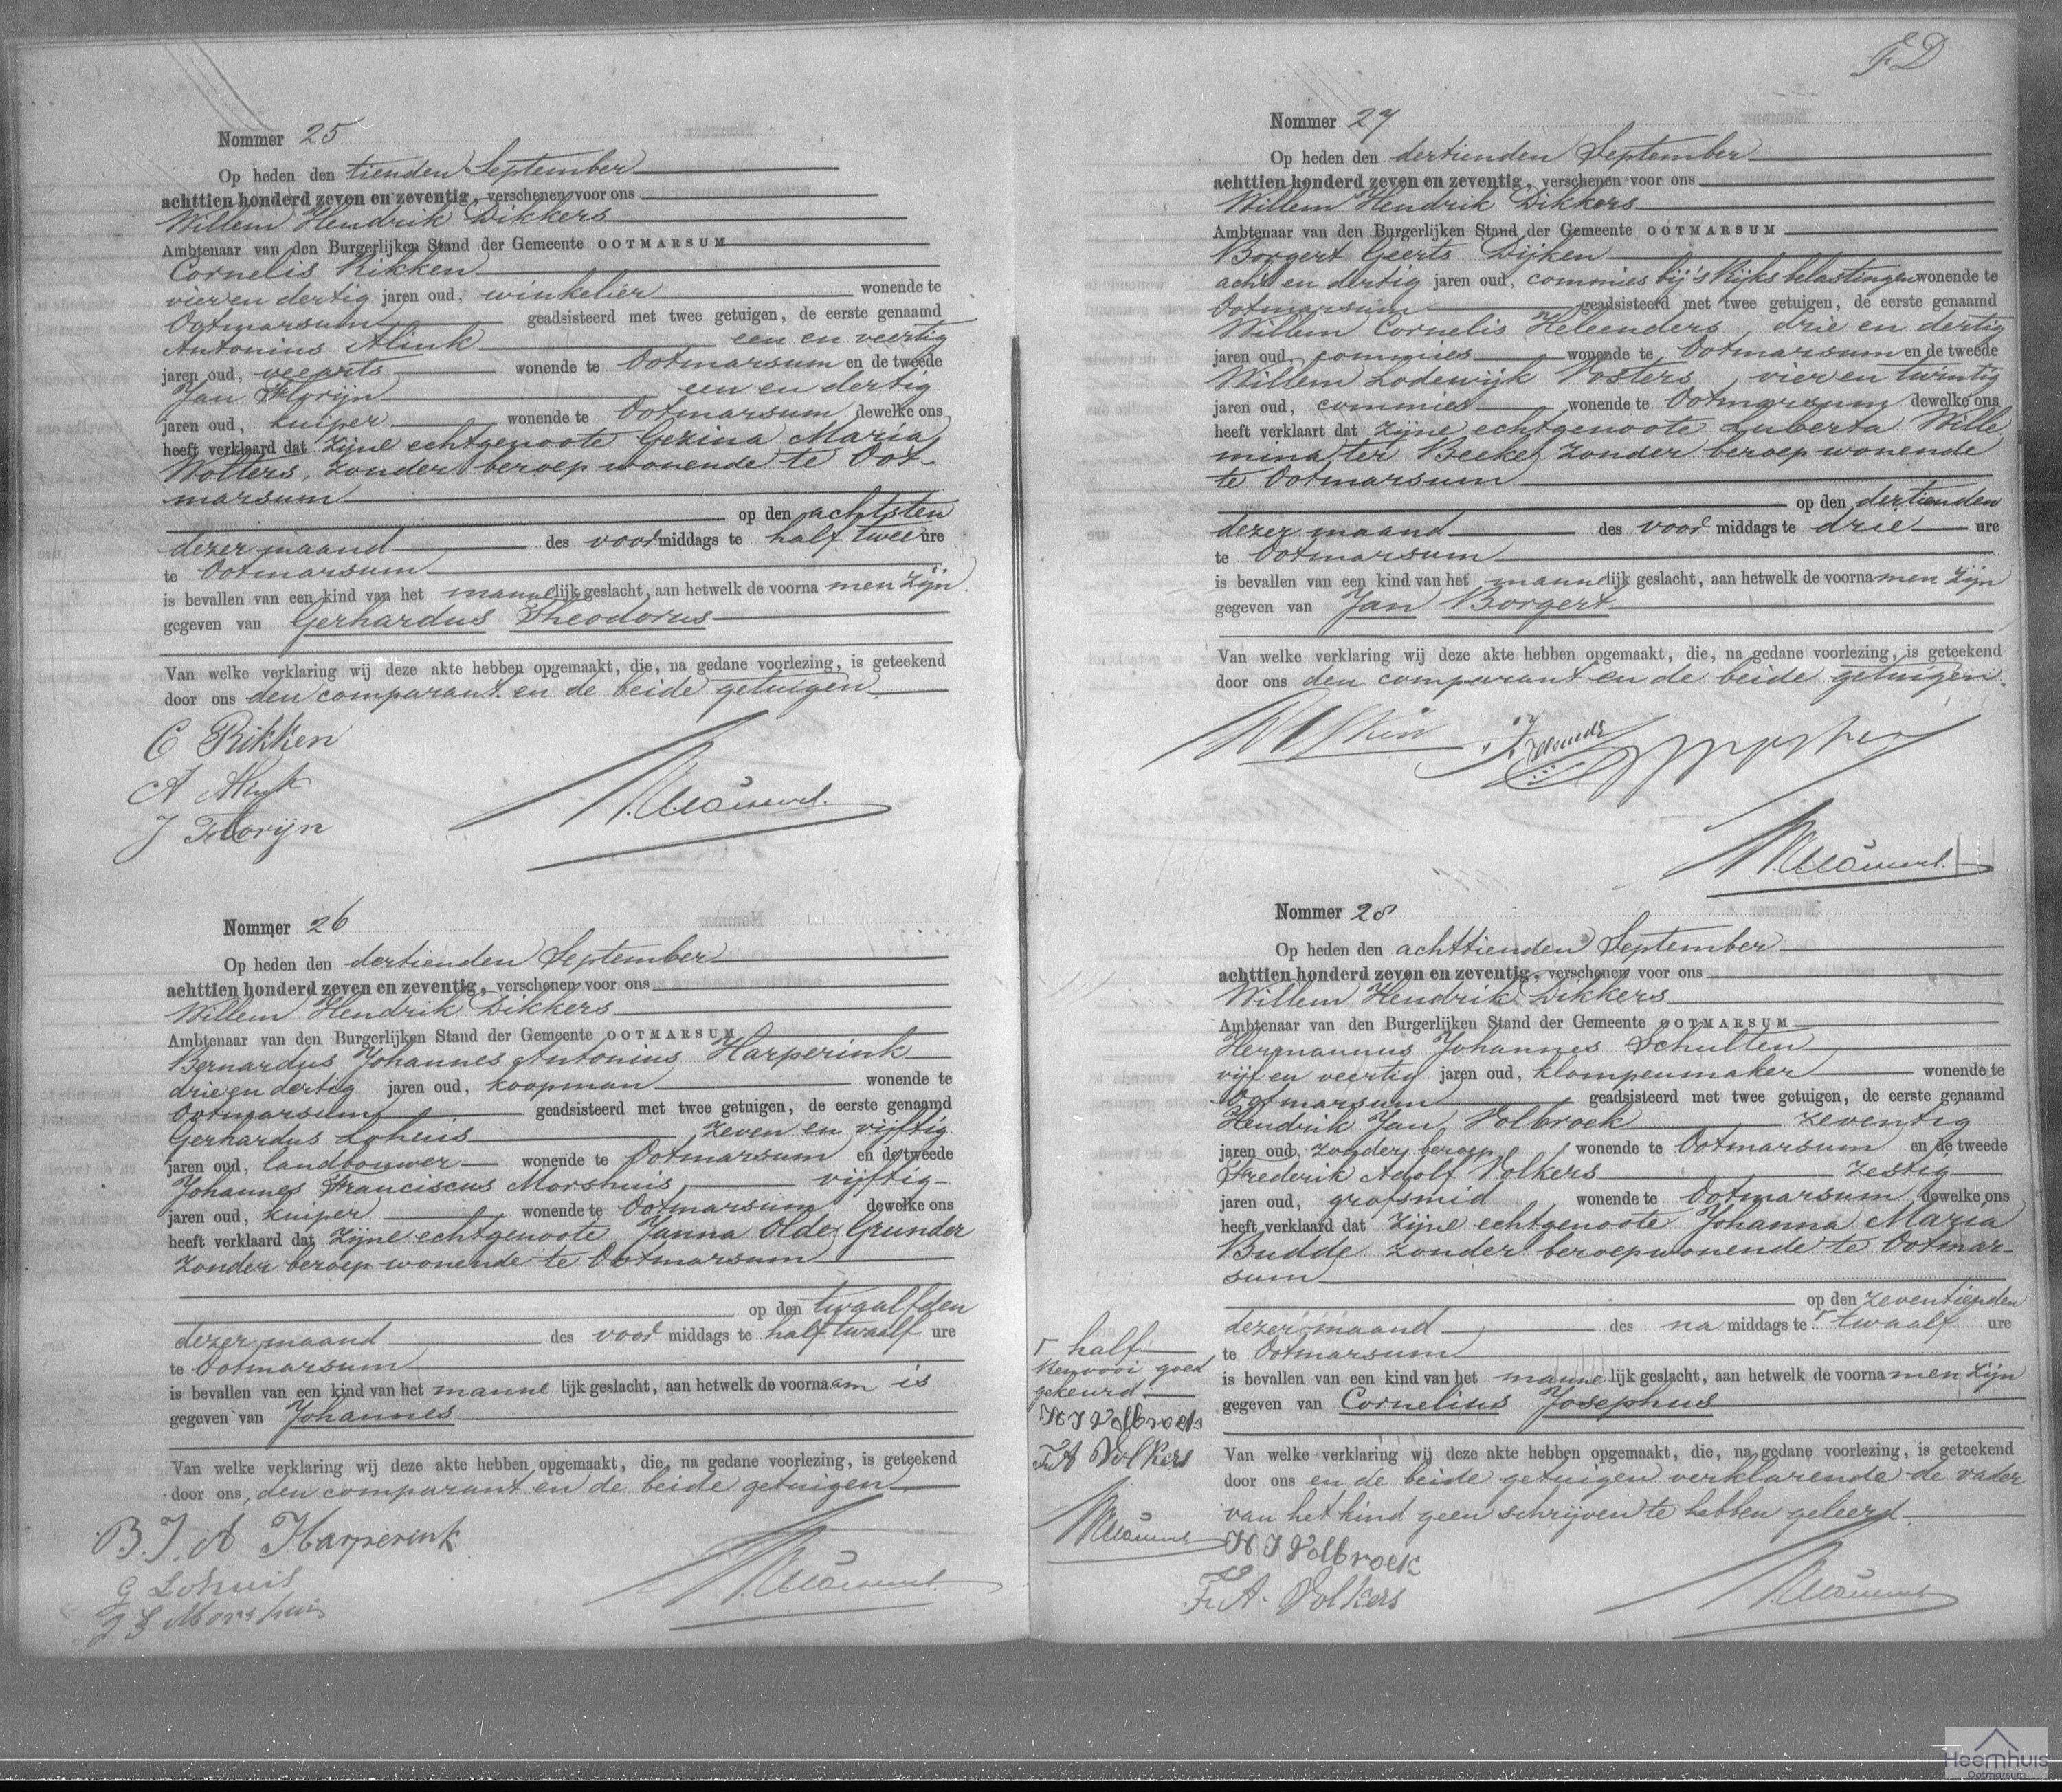 Nommer 25
Op heden den tienden September
achttien honderd zeven en zeventig, verschenen voor ons
Willem Hendrik Dikkers
Ambtenaar van den Burgerlijken Stand der Gemeente OOTMARSUM
Cornelis Rikken
vier en dertig jaren oud, winkelier wonende te
Ootmarsum geadsisteerd met twee getuigen, de eerste genaamd
Antonius Alink een en veertig
jaren oud, veearts wonende te Ootmarsum en de tweede
Jan Florijn een en dertig
jaren oud, kuiper wonende te Ootmarsum dewelke ons
heeft verklaard dat zijne echtgenoote Gezina Maria
Wolters, zonder beroep wonende te Oot-
marsum
op den achtsten
dezer maand des voormiddags te half twee ure
te Ootmarsum
is bevallen van een kind van het mannelijk geslacht, aan hetwelk de voornamen zijn
gegeven van Gerhardus Theodorus
Van welke verklaring wij deze akte hebben opgemaakt, die, na gedane voorlezing, is geteekend
door ons den comparant en de beide getuigen
C Rikken
A Alink
J Florijn
Nommer 26
Op heden den dertienden September
achttien honderd zeven en zeventig, verschenen voor ons
Willem Hendrik Dikkers
Ambtenaar van den Burgerlijken Stand der Gemeente OOTMARSUM
Bernardus Johannes Antonius Harperink
drie en dertig jaren oud, koopman wonende te
Ootmarsum geadsisteerd met twee getuigen, de eerste genaamd
Gerhardus Lohuis zeven en vijftig
jaren oud, landbouwer wonende te Ootmarsum en de tweede
Johannes Franciscus Morshuis, vijftig
jaren oud, kuiper wonende te Ootmarsum dewelke ons
heeft verklaard dat zijne echtgenoote Janna Olde Grunder
zonder beroep wonende te Ootmarsum
op den twaalfden
dezer maand des voor middags te half twaalf ure
te Ootmarsum
is bevallen van een kind van het mannelijk geslacht, aan hetwelk de voornaam is
gegeven van Johannes
Van welke verklaring wij deze akte hebben opgemaakt, die, na gedane voorlezing, is geteekend
door ons, den comparant en de beide getuigen
B. J. A Harperink
G Lohuis
J F Morshuis
FD
Nommer 27
Op heden den dertienden September
achttien honderd zeven en zeventig, verschenen voor ons
Willem Hendrik Dikkers
Ambtenaar van den Burgerlijken Stand der Gemeente OOTMARSUM
Borgert Geerts Dijken
acht en dertig jaren oud, commies bij 's Rijks belastingen wonende te
Ootmarsum geadsisteerd met twee getuigen, de eerste genaamd
Willem Cornelis Heleenders, drie en dertig
jaren oud, commies wonende te Ootmarsum en de tweede
Willem Lodewijk Vosters, vier en twintig
jaren oud, commies wonende te Ootmarsum dewelke ons
heeft verklaart dat zijne echtgenoote Luberta Wille
mina ter Beeke, zonder beroep wonende
te Ootmarsum
op den dertienden
dezer maand des voor middags te drie ure
te Ootmarsum
is bevallen van een kind van het mannelijk geslacht, aan hetwelk de voornamen zijn
gegeven van Jan Borgert
Van welke verklaring wij deze akte hebben opgemaakt, die, na gedane voorlezing, is geteekend
door ons den comparant en de beide getuigen.
Nommer 28
Op heden den achttienden September
achttien honderd zeven en zeventig, verschenen voor ons
Willem Hendrik Dikkers
Ambtenaar van den Burgerlijken Stand der Gemeente OOTMARSUM
Hermannus Johannes Schulten
vijf en veertig jaren oud, klompenmaker wonende te
Ootmarsum geadsisteerd met twee getuigen, de eerste genaamd
Hendrik Jan Volbroek zeventig
jaren oud, zonder beroep, wonende te Ootmarsum en de tweede
Frederik Adolf Volkers zestig
jaren oud, grofsmid wonende te Ootmarsum dewelke ons
heeft verklaard dat zijne echtgenoote Johanna Maria
Budde zonder beroep wonende te Ootmar-
sum
op den zeventienden
dezer maand des na middags te twaalf ure
te Ootmarsum
is bevallen van een kind van het mannelijk geslacht, aan hetwelk de voornamen zijn
gegeven van Cornelius Josephus
Van welke verklaring wij deze akte hebben opgemaakt, die, na gedane voorlezing, is geteekend
door ons en de beide getuigen verklarende de vader
van het kind geen schrijven te hebben geleerd.
H J Volbroek
F. A. Volkers
half
Renvooi goed
gekeurd
H J Volbroek
F. A Volkers
Heemhuis
Ootmarsum